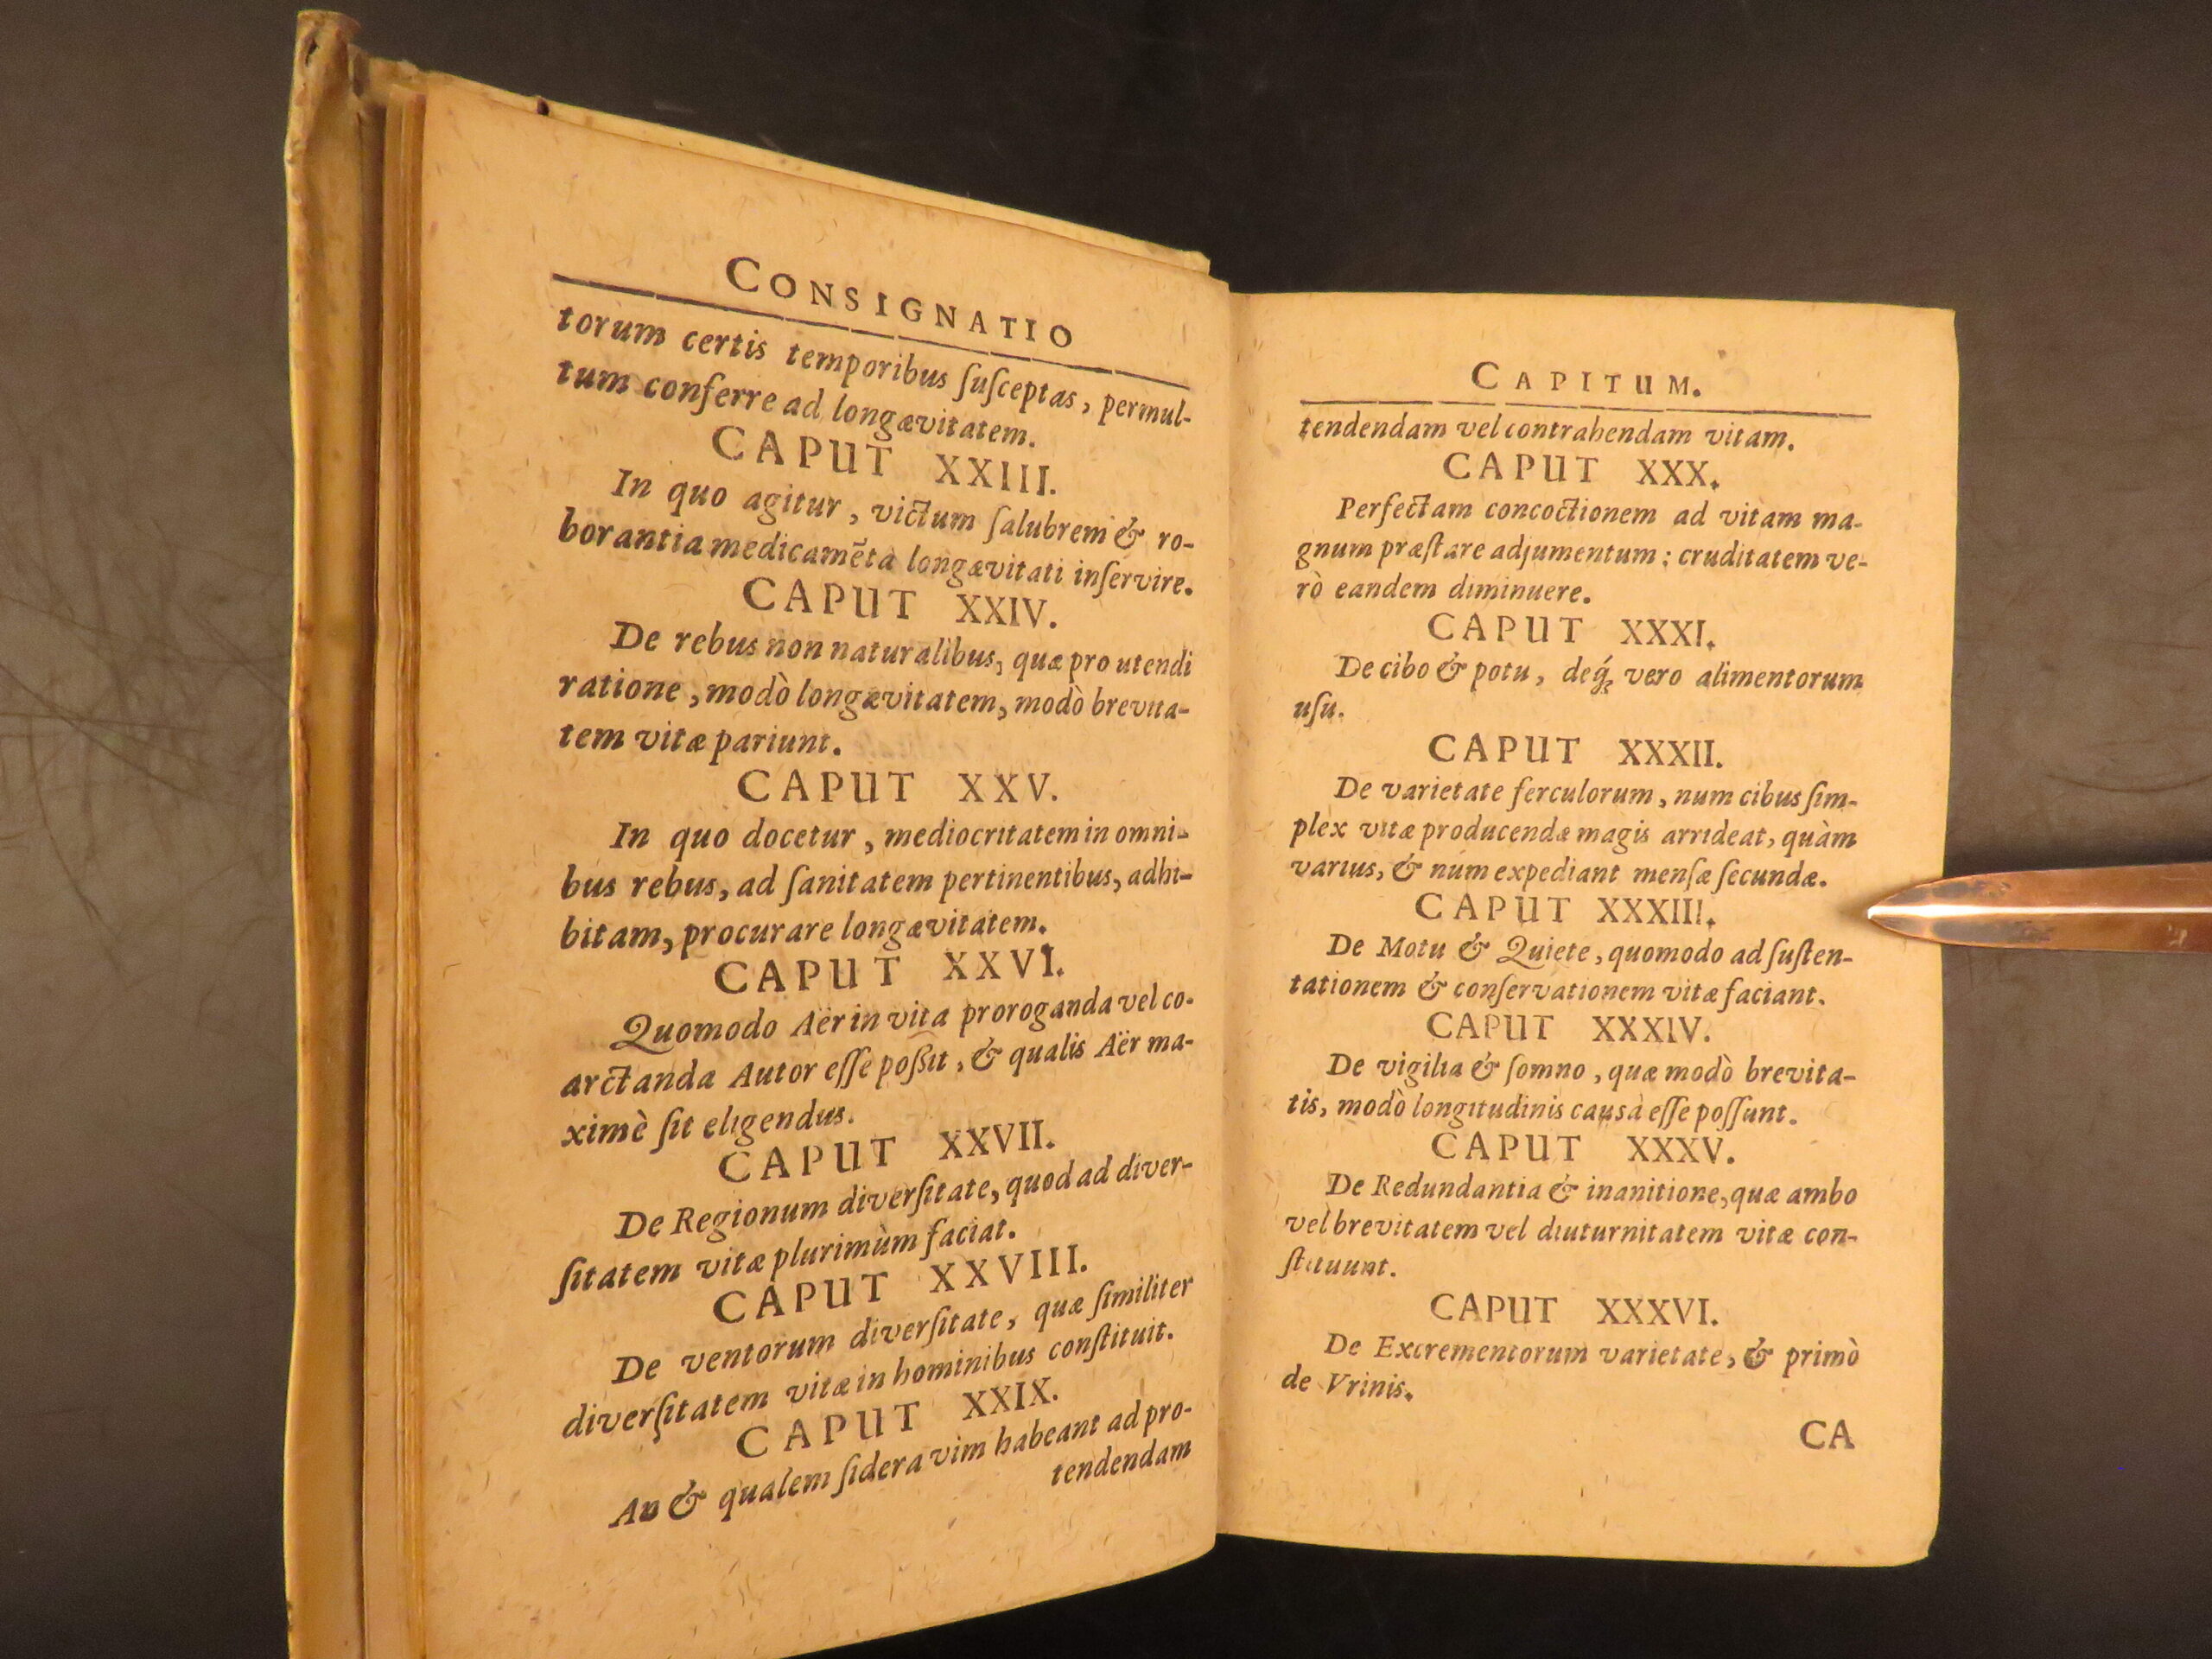 CONSIGNATIO
torum certis temporibus ſuſceptas, permul-
tum conferre ad longævitatem.
CAPUT XXIII.
In quo agitur, victum ſalubrem & ro-
borantia medicamẽta longævitati inſervire.
CAPUT XXIV.
De rebus non naturalibus, quæ pro utendi
ratione, modò longævitatem, modò brevita-
tem vitæ pariunt.
CAPUT XXV.
In quo docetur, mediocritatem in omni-
bus rebus, ad ſanitatem pertinentibus, adhi-
bitam, procurare longævitatem.
CAPUT XXVI.
Quomodo Aër in vita proroganda vel co-
arctanda Autor eſſe poßit, & qualis Aër ma-
ximè ſit eligendus.
CAPUT XXVII.
De Regionum diverſitate, quod ad diver-
ſitatem vitæ plurimùm faciat.
CAPUT XXVIII.
De ventorum diverſitate, quæ ſimiliter
diverſitatem vitæ in hominibus conſtituit.
CAPUT XXIX.
An & qualem ſidera vim habeant ad pro-
tendendam
CAPITUM.
tendendam vel contrahendam vitam.
CAPUT XXX.
Perfectam concoctionem ad vitam ma-
gnum præſtare adjumentum: cruditatem ve-
rò eandem diminuere.
CAPUT XXXI.
De cibo & potu, deq́; vero alimentorum
uſu.
CAPUT XXXII.
De varietate ferculorum, num cibus ſim-
plex vitæ producendæ magis arrideat, quàm
varius, & num expediant menſæ ſecundæ.
CAPUT XXXIII.
De Motu & Quiete, quomodo ad ſuſten-
tationem & conſervationem vitæ faciant.
CAPUT XXXIV.
De vigilia & ſomno, quæ modò brevita-
tis, modò longitudinis causà eſſe poſſunt.
CAPUT XXXV.
De Redundantia & inanitione, quæ ambo
vel brevitatem vel diuturnitatem vitæ con-
ſtituunt.
CAPUT XXXVI.
De Excrementorum varietate, & primò
de Vrinis.
CA